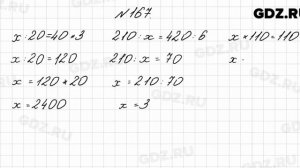 №167
GDZ.RU
x : 20 = 40 * 3
x : 20 = 120
x = 120 * 20
x = 2400
210 : x = 420 : 6
210 : x = 70
x = 210 : 70
x = 3
x * 110 = 110
x ·
GDZ.RU